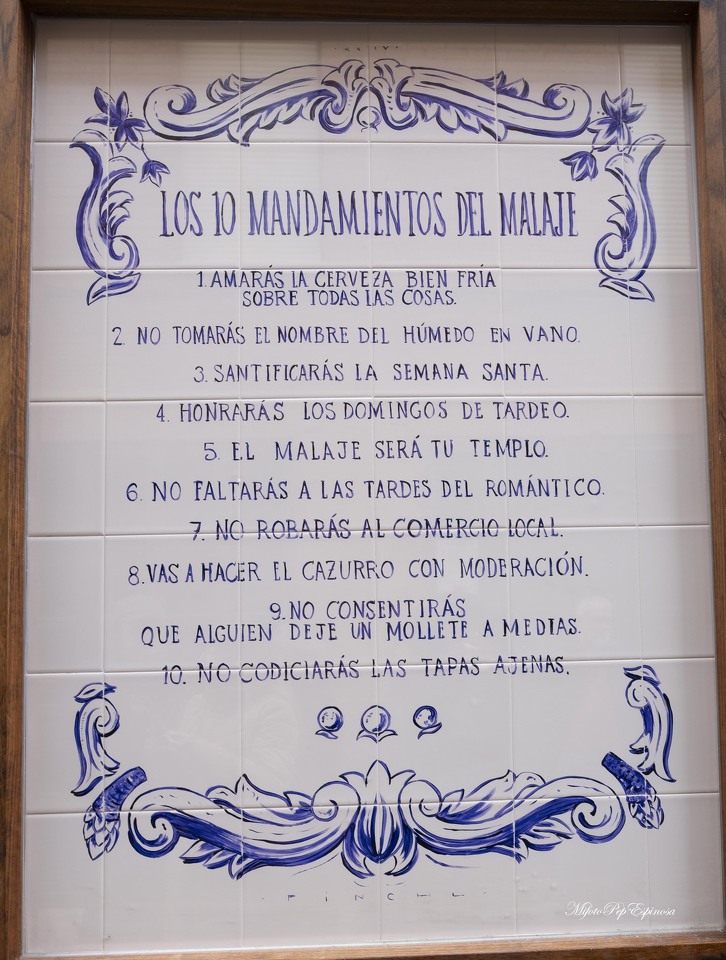 LOS 10 MANDAMIENTOS DEL MALAJE
1. AMARÁS LA CERVEZA BIEN FRÍA
SOBRE TODAS LAS COSAS.
2. NO TOMARÁS EL NOMBRE DEL HÚMEDO EN VANO.
3. SANTIFICARÁS LA SEMANA SANTA.
4. HONRARÁS LOS DOMINGOS DE TARDEO.
5. EL MALAJE SERÁ TU TEMPLO.
6. NO FALTARÁS A LAS TARDES DEL ROMÁNTICO.
7. NO ROBARÁS AL COMERCIO LOCAL.
8. VAS A HACER EL CAZURRO CON MODERACIÓN.
9. NO CONSENTIRÁS
QUE ALGUIEN DEJE UN MOLLETE A MEDIAS.
10. NO CODICIARÁS LAS TAPAS AJENAS.
MifotoPepEspinosa